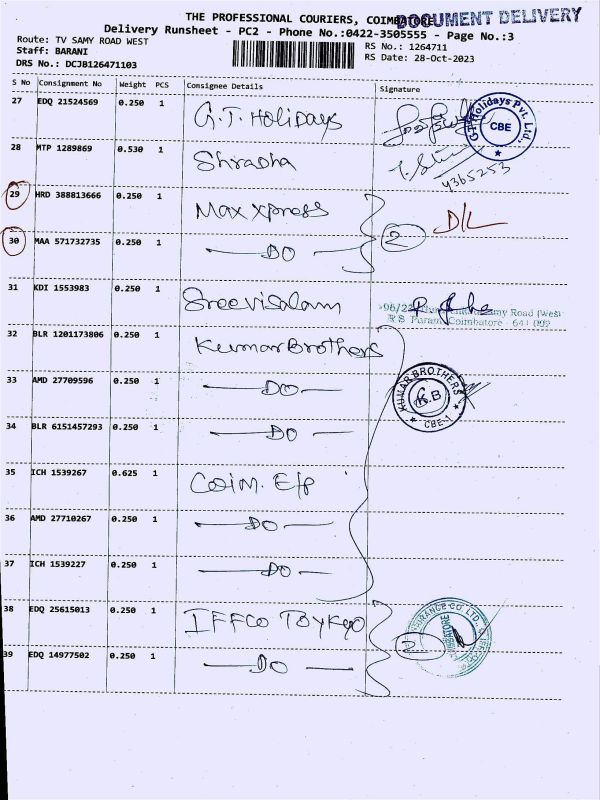 THE PROFESSIONAL COURIERS, COIMBATORE
DOCUMENT DELIVERY
Delivery Runsheet - PC2 - Phone No.:0422-3505555 - Page No.:3
Route: TV SAMY ROAD WEST
RS No.: 1264711
Staff: BARANI
RS Date: 28-Oct-2023
DRS No.: DCJB126471103
S No Consignment No Weight PCS Consignee Details Signature
27 EDQ 21524569 0.250 1 G.T. Holidays
G.T. Holidays Pvt. Ltd. CBE
28 MTP 1289869 0.530 1 Shradha
9365253
29 HRD 388813666 0.250 1 Max xpress D/L
30 MAA 571732735 0.250 1 —DO— 2
31 KDI 1553983 0.250 1 Sreevisalam
Samy Road (West
R S Puram Coimbatore - 641 002
32 BLR 1201173806 0.250 1 Kumar Brothers
33 AMD 27709596 0.250 1 —DO—
KUMAR BROTHERS K.B CBE-1
34 BLR 6151457293 0.250 1 —DO—
35 ICH 1539267 0.625 1 Coim. E/p
36 AMD 27710267 0.250 1 —DO—
37 ICH 1539227 0.250 1 —DO—
38 EDQ 25615013 0.250 1 IFFCO TOYKYO
2 INSURANCE CO. LTD. COIMBATORE
39 EDQ 14977502 0.250 1 —DO—